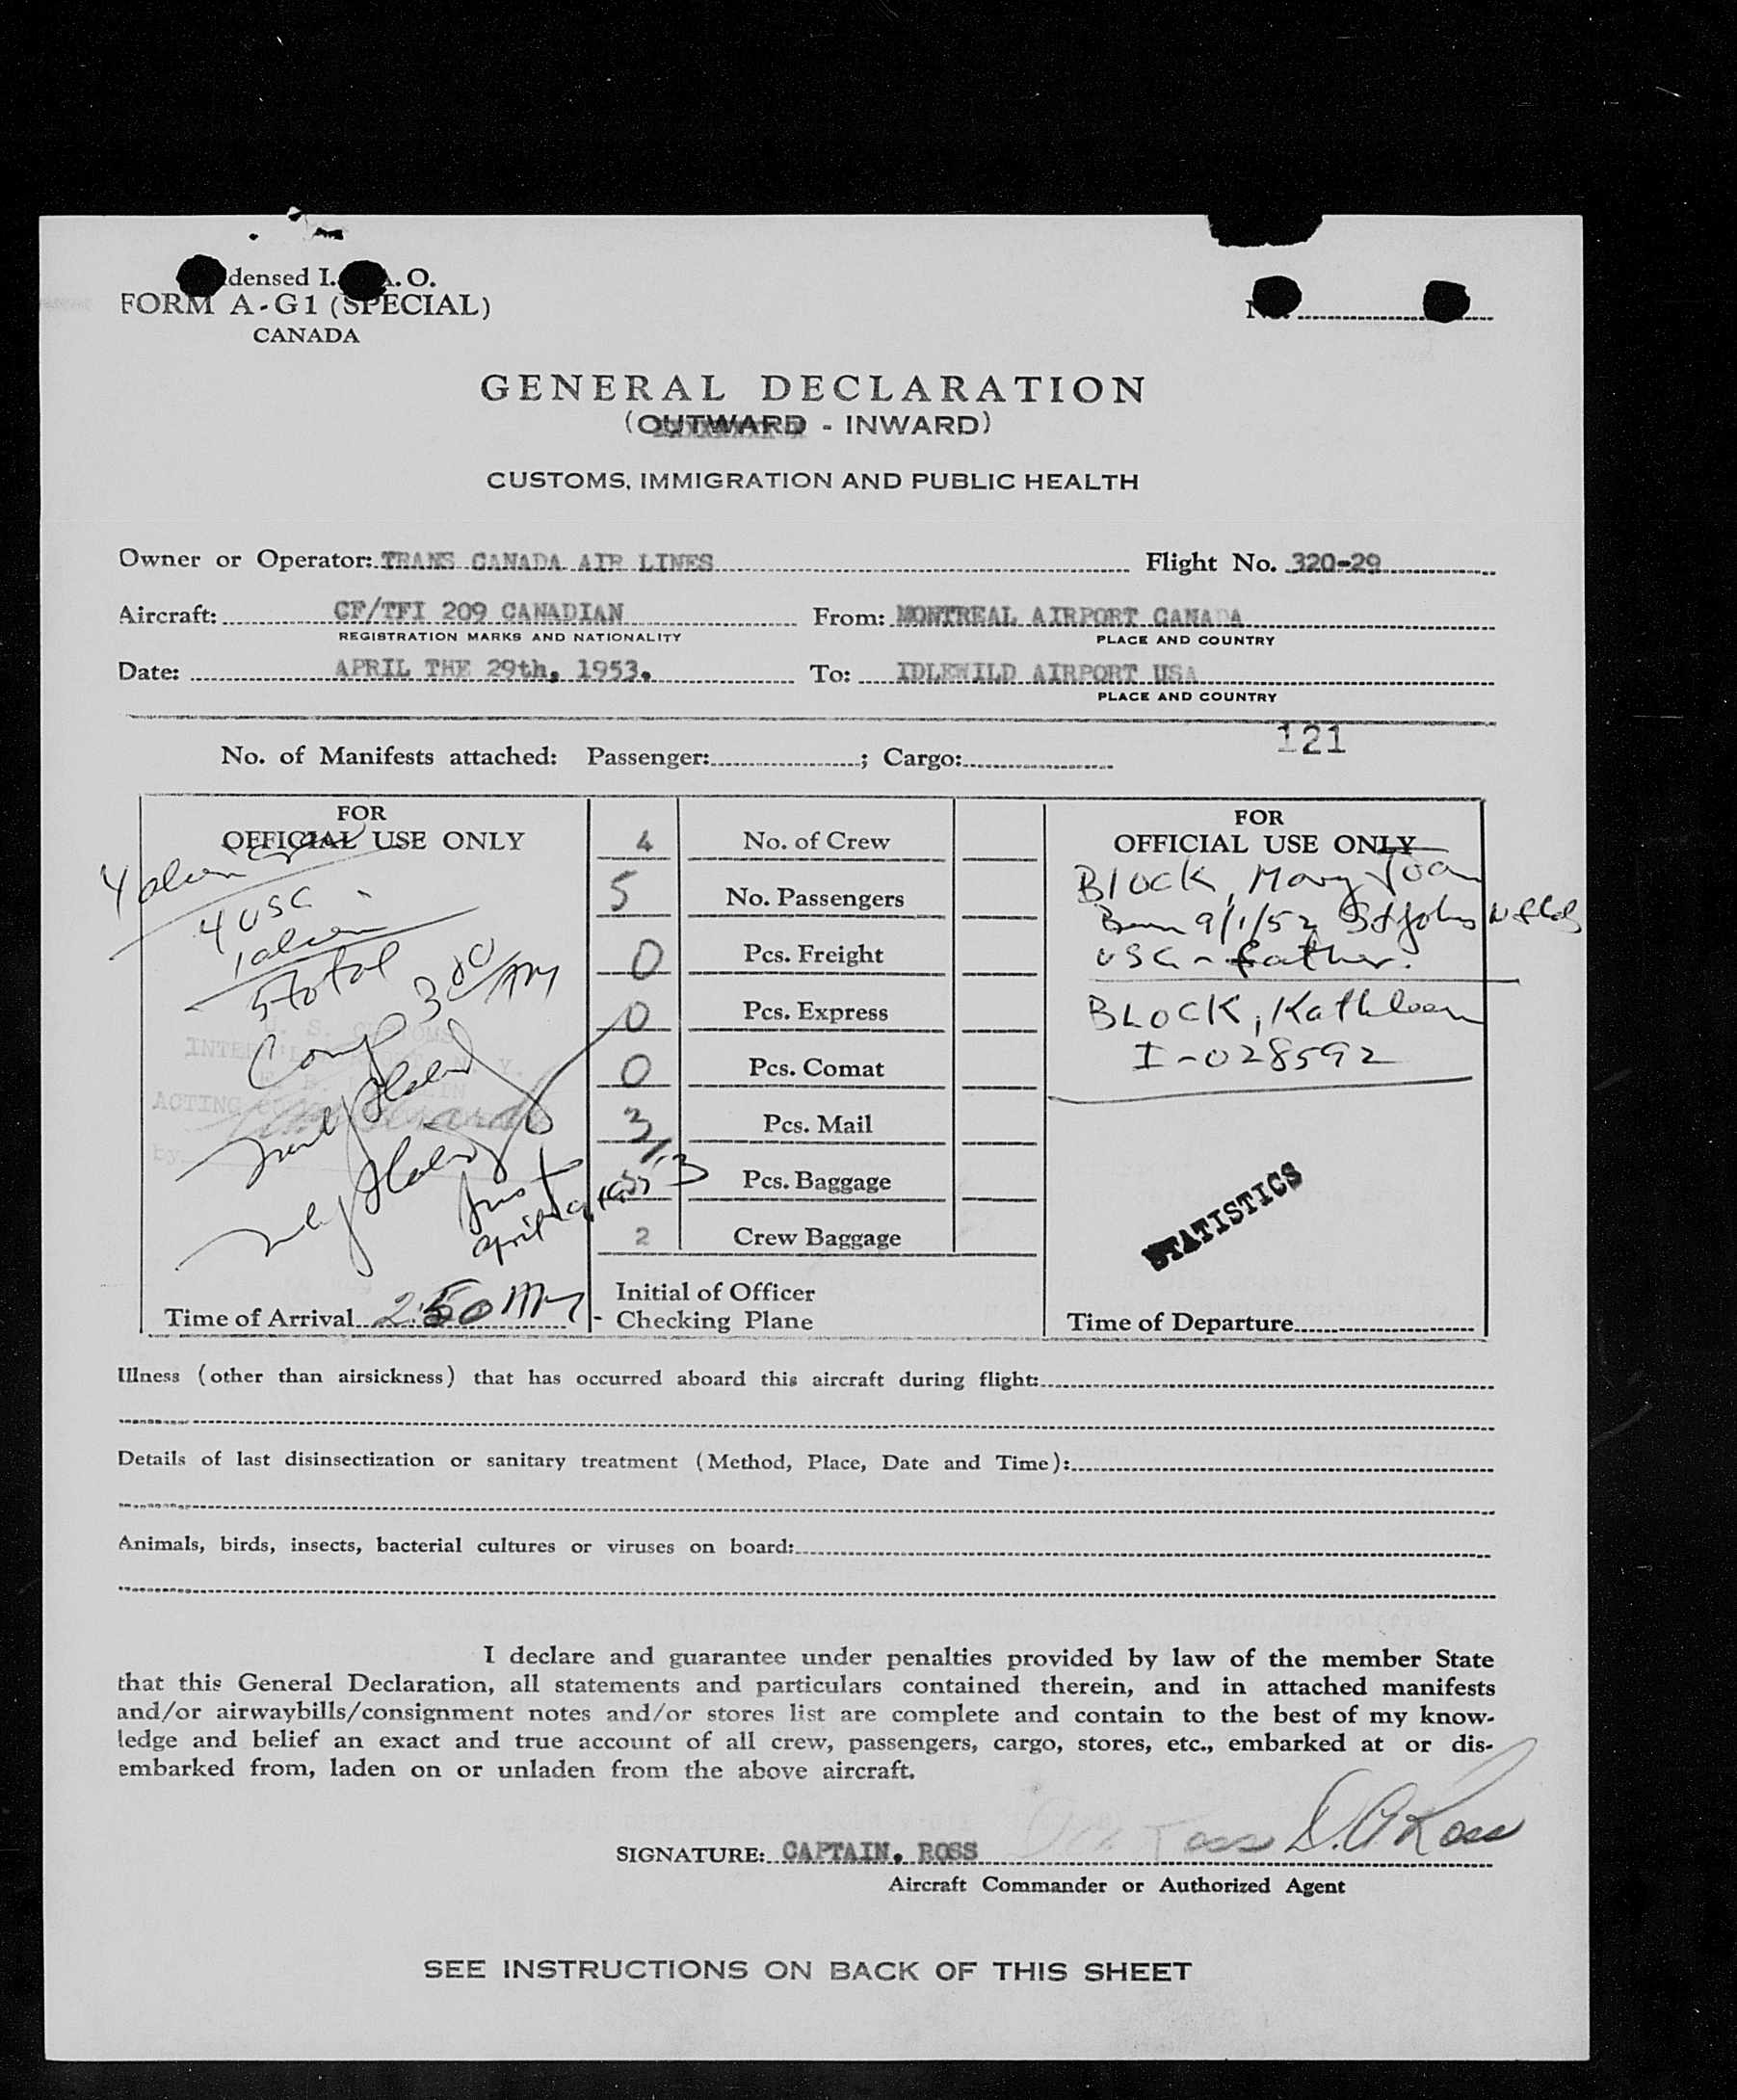 densed I. A. O.
FORM A-G1 (SPECIAL)
CANADA
No.
GENERAL DECLARATION
(OUTWARD - INWARD)
CUSTOMS, IMMIGRATION AND PUBLIC HEALTH
Owner or Operator: TRANS CANADA AIR LINES Flight No. 320-29
Aircraft: CF/TFI 209 CANADIAN From: MONTREAL AIRPORT CANADA
REGISTRATION MARKS AND NATIONALITY PLACE AND COUNTRY
Date: APRIL THE 29th, 1953. To: IDLEWILD AIRPORT USA
PLACE AND COUNTRY
121
No. of Manifests attached: Passenger: ; Cargo:
FOR
OFFICIAL USE ONLY
4 alien
4 USC
1 alien
5 total
300
Time of Arrival 2:50
4 No. of Crew
5 No. Passengers
0 Pcs. Freight
0 Pcs. Express
0 Pcs. Comat
3 Pcs. Mail
Pcs. Baggage
2 Crew Baggage
Initial of Officer
Checking Plane
FOR
OFFICIAL USE ONLY
Block, Mary Joan
Born 9/1/52 St Johns Nfld
USC - father.
BLOCK, Kathleen
I-028592
STATISTICS
Time of Departure
Illness (other than airsickness) that has occurred aboard this aircraft during flight:
Details of last disinsectization or sanitary treatment (Method, Place, Date and Time):
Animals, birds, insects, bacterial cultures or viruses on board:
I declare and guarantee under penalties provided by law of the member State
that this General Declaration, all statements and particulars contained therein, and in attached manifests
and/or airwaybills/consignment notes and/or stores list are complete and contain to the best of my know-
ledge and belief an exact and true account of all crew, passengers, cargo, stores, etc., embarked at or dis-
embarked from, laden on or unladen from the above aircraft.
SIGNATURE: CAPTAIN. ROSS D.A Ross
Aircraft Commander or Authorized Agent
SEE INSTRUCTIONS ON BACK OF THIS SHEET